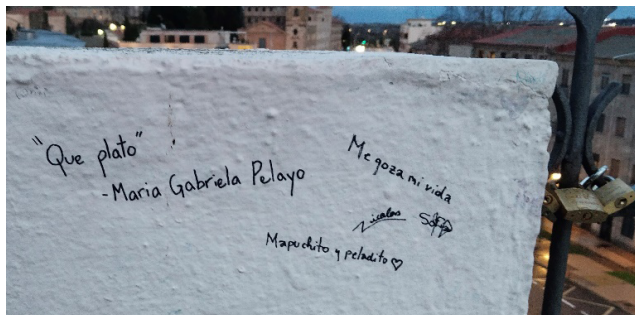 "Que plato"
-Maria Gabriela Pelayo
Me goza mi vida
Nicolas
Mapuchito y peladito♡